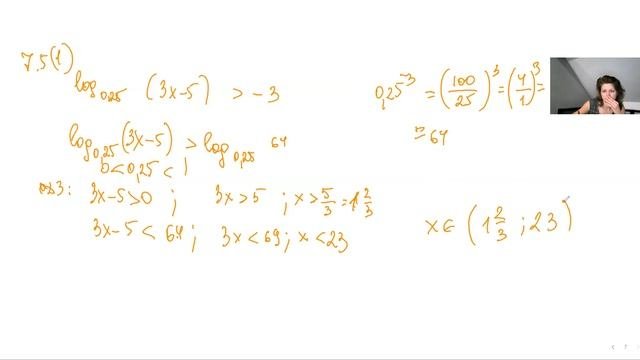 7.5(1)
log₀,₂₅ (3x-5) > -3
0,25⁻³ = (100/25)³ = (4/1)³ =
= 64
log₀,₂₅(3x-5) > log₀,₂₅ 64
0 < 0,25 < 1
3x-5>0 ; 3x>5 ; x>5/3=1 2/3
3x-5 < 64 ; 3x < 69 ; x < 23
x ∈ (1 2/3 ; 23)